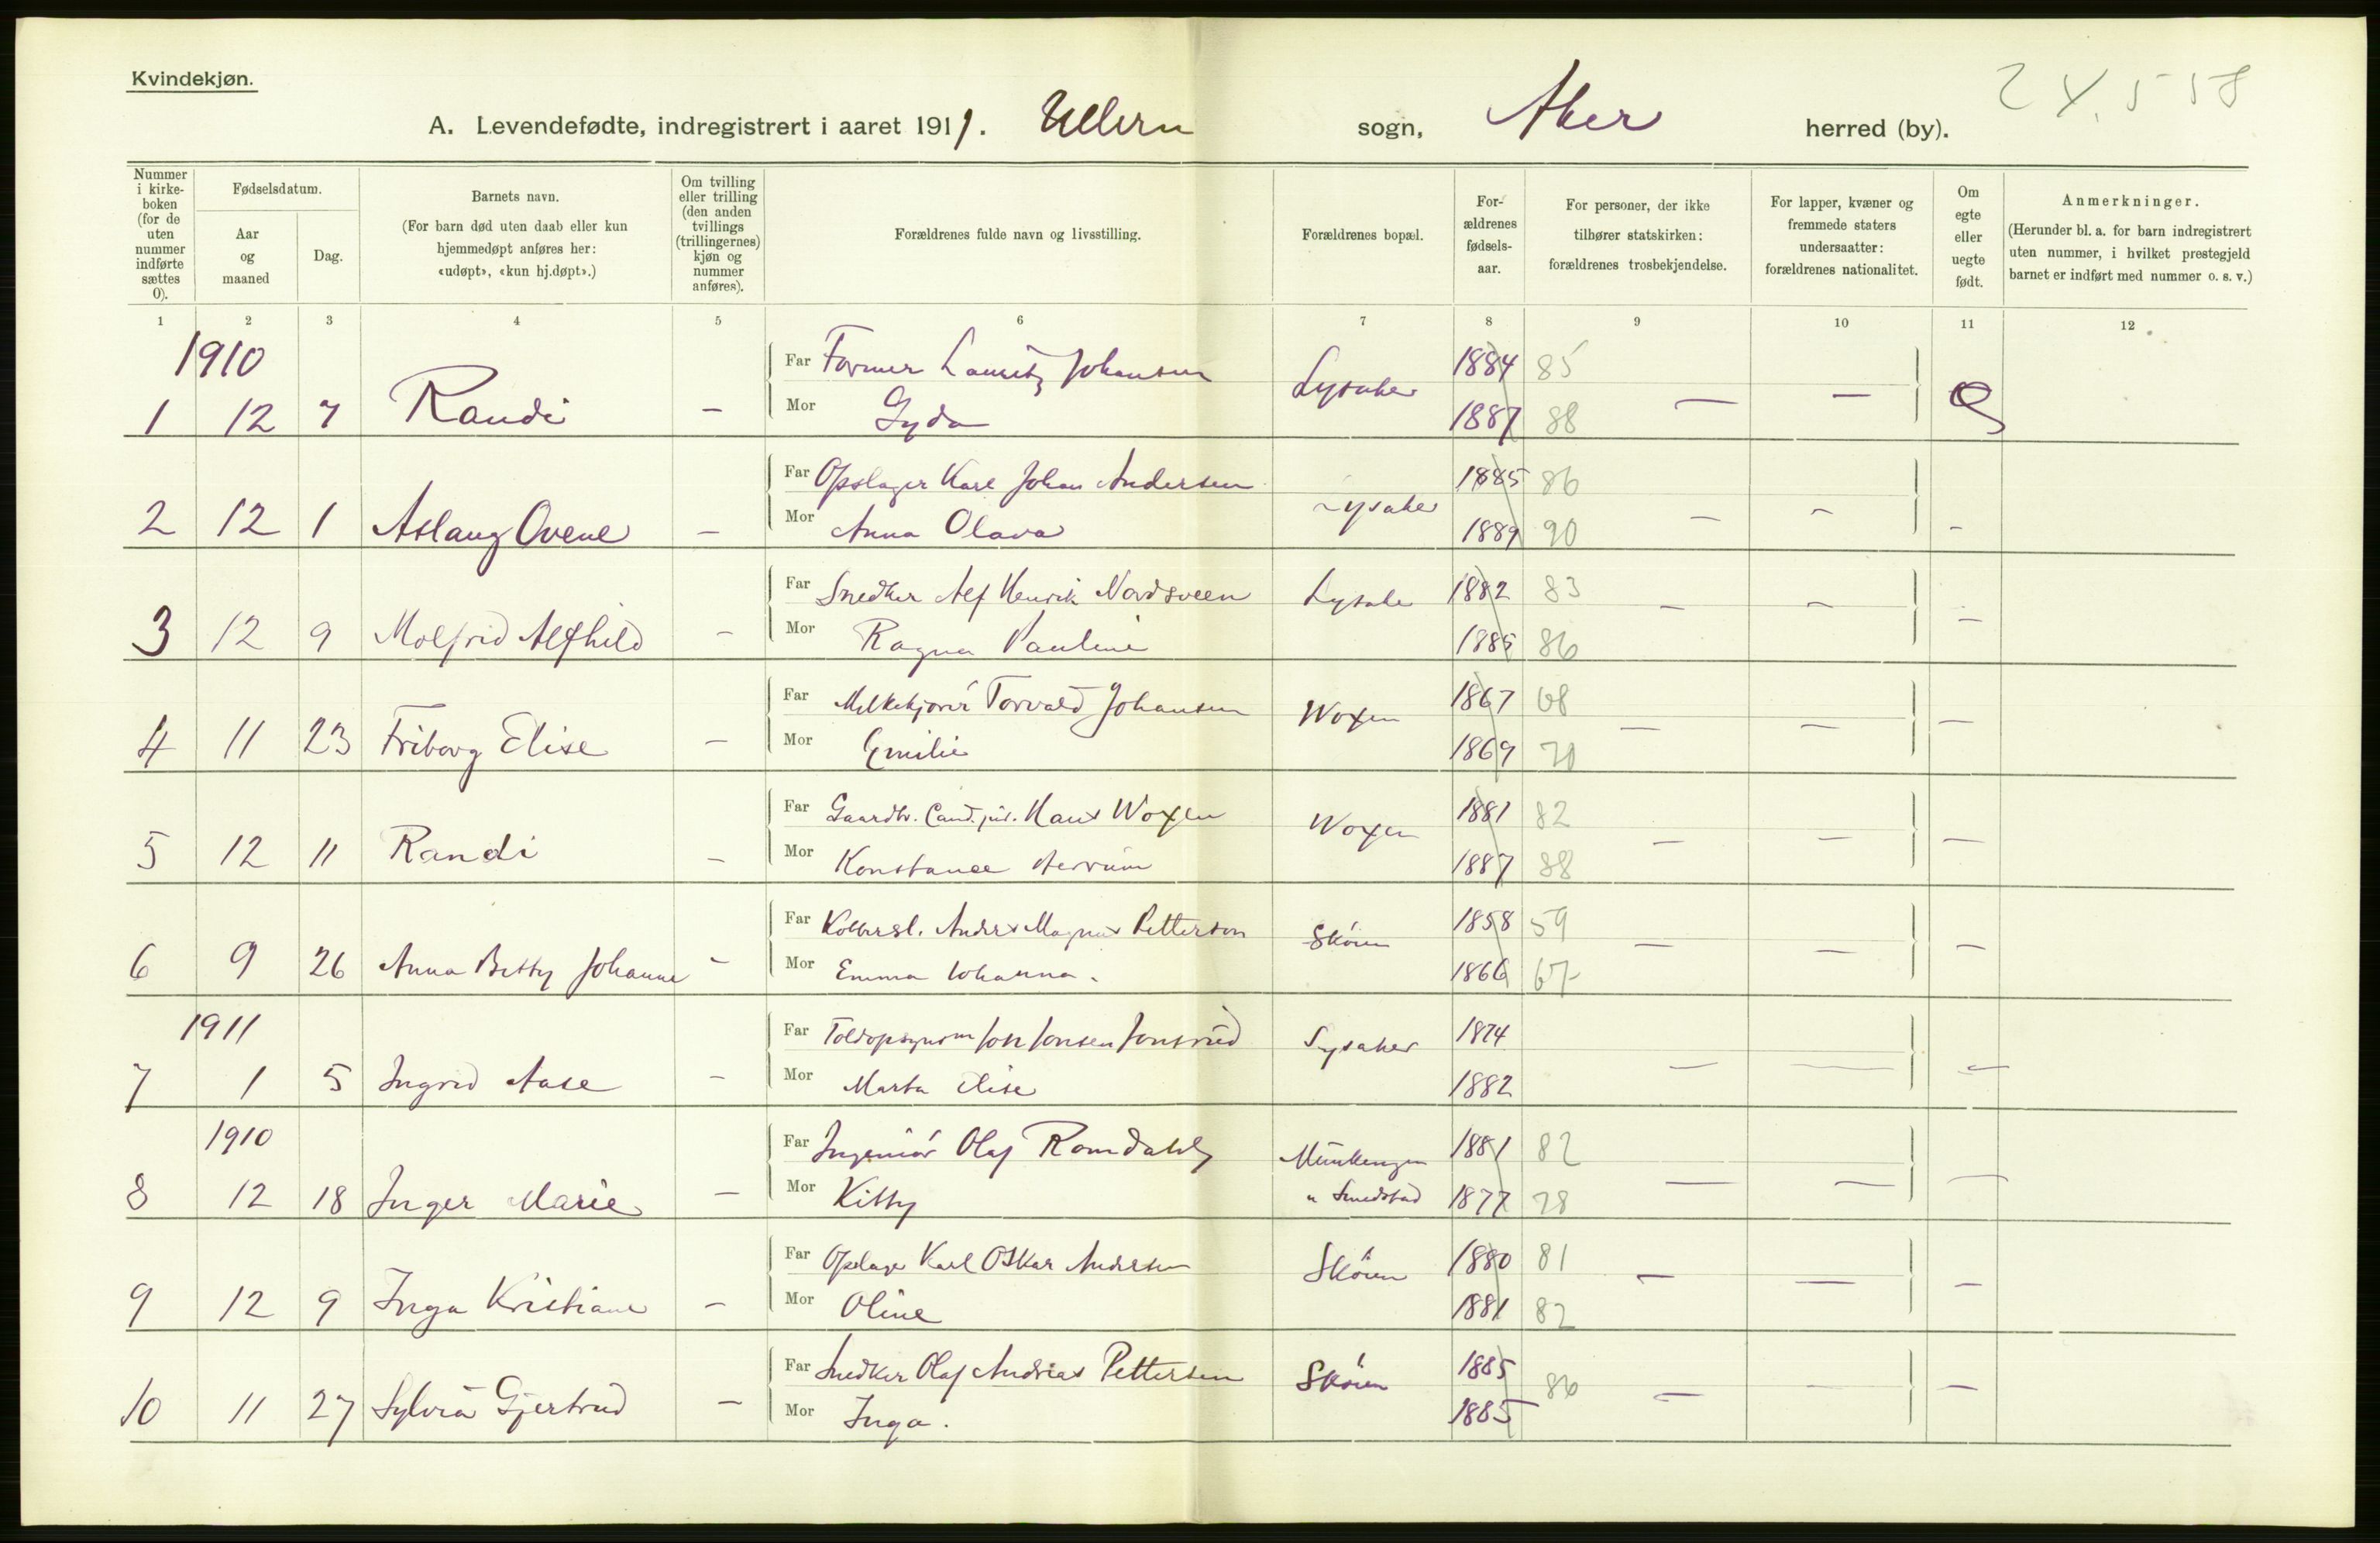 Kvindekjøn.
24.558
A. Levendefødte, indregistrert i aaret 1911. Ullern sogn, Aker herred (by).
Nummer i kirke-boken (for de uten nummer indførte sættes 0).
Fødselsdatum.
Aar og maaned
Dag.
Barnets navn.
(For barn død uten daab eller kun hjemmedøpt anføres her: «udøpt», «kun hj.døpt».)
Om tvilling eller trilling (den anden tvillings (trillingernes) kjøn og nummer anføres).
Forældrenes fulde navn og livsstilling.
Forældrenes bopæl.
For-ældrenes fødsels-aar.
For personer, der ikke tilhører statskirken: forældrenes trosbekjendelse.
For lapper, kvæner og fremmede staters undersaatter: forældrenes nationalitet.
Om egte eller uegte født.
Anmerkninger.
(Herunder bl. a. for barn indregistrert uten nummer, i hvilket prestegjeld barnet er indført med nummer o. s. v.)
1 2 3 4 5 6 7 8 9 10 11 12
1910
Far Former Lauritz Johansen Lysaker 1884 85
1 12 7 Randi – Mor Gyda 1887 88 – – e
Far Opslager Karl Johan Andersen Lysaker 1885 86
2 12 1 Aslaug Ovene – Mor Anna Olava 1889 90 – – –
Far Snedker Alf Henrik Nordsveen Lysake 1882 83
3 12 9 Molfrid Alfhild – Mor Ragna Pauline 1885 86 – – –
Far Melkekjører Torvald Johansen Woxen 1867 68
4 11 23 Friborg Elise – Mor Emilie 1869 70 – – –
Far Gaardbr. Cand. jur. Hans Woxen Woxen 1881 82
5 12 11 Randi – Mor Konstance 1887 88 – – –
Far Anders Magnus Petterson Skøien 1858 59
6 9 26 Anna Betty Johanne – Mor Emma Johanna. 1866 67 – – –
1911
Far Toldopsynsm Jonsen Jonsrud Lysaker 1874
7 1 5 Ingrid Aase – Mor Marta Elise 1882 – – –
1910
Far Ingeniør Olaf Romdahl Munkengen 1881 82
8 12 18 Inger Marie – Mor Kitty " Smedstad 1877 78 – – –
Far Opslager Karl Oskar Andersen Skøien 1880 81
9 12 9 Inga Kristiane – Mor Oline 1881 82 – – –
Far Snedker Olaf Andreas Pettersen Skøien 1885
10 11 27 Sylvia Gjertrud – Mor Inga. 1885 86 – – –